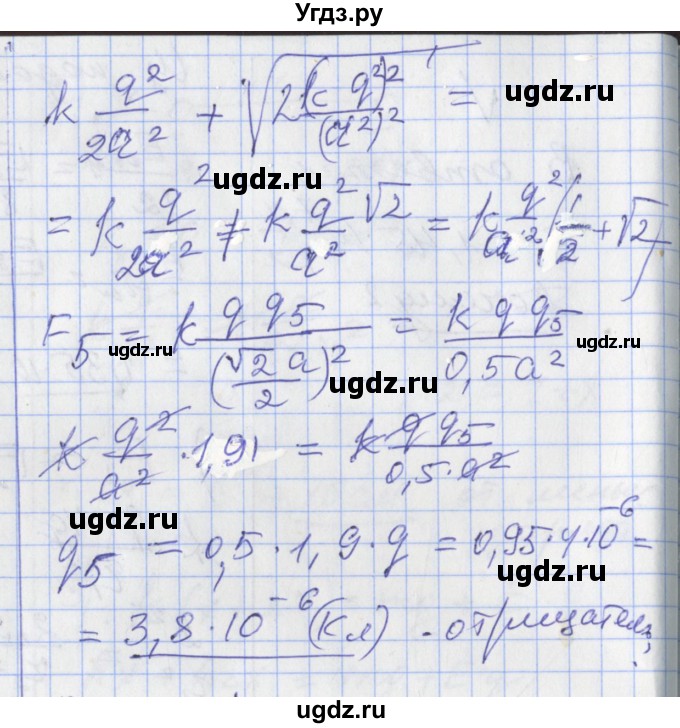 Угдз.ру
k q²/2a² + √(2(k q²)²/(a²)²) =
ugdz.ru
ugdz.ru
= k q²/2a² + k q²/a² √2 = k q²/a² (1/2 + √2)
ugdz.ru
F₅ = k q q₅/(√2 a/2)² = k q q₅/0,5a²
ugdz.ru
ugdz.ru
ugdz.ru
k q²/a² · 1,91 = k q q₅/0,5·a²
ugdz.ru
ugdz.ru
q₅ = 0,5 · 1,9 · q = 0,95·4·10⁻⁶ =
ugdz.ru
= 3,8 · 10⁻⁶ (Кл) - отрицатель
ugdz.ru
ugdz.ru